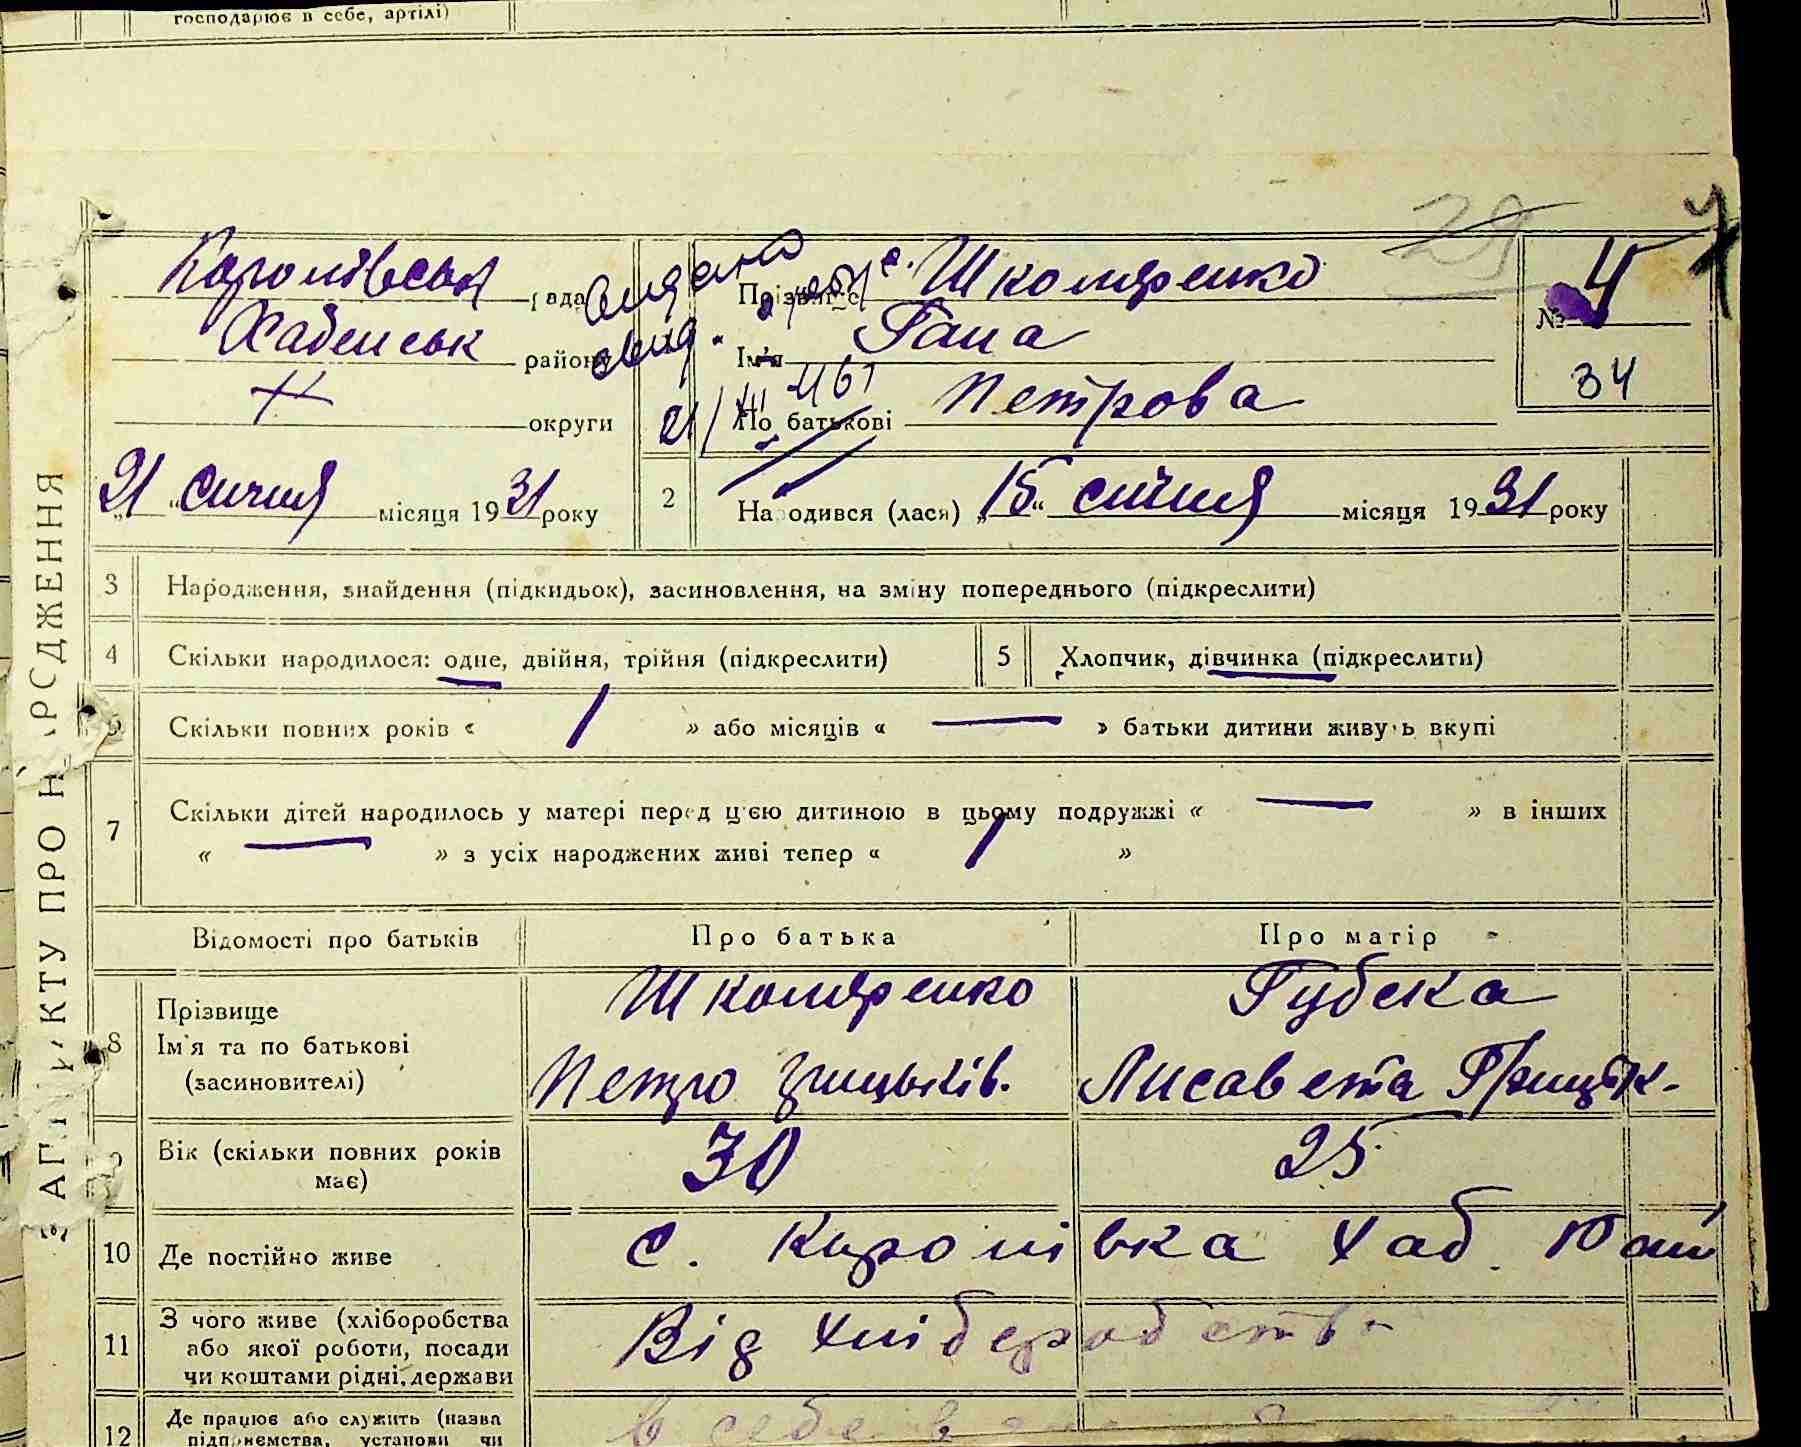 господарює в себе, артілі)
Каролівська рада
Хабенськ району
округи
Видано
свид.
21/XII 461
Прізвище Школяренко
Ім'я Гана
По батькові Петрова
29
№ 4
34
„21“ січня місяця 1931 року
2 Народився (лася) „15“ січня місяця 1931 року
ЗАПИС АКТУ ПРО НАРОДЖЕННЯ
3 Народження, знайдення (підкидьок), засиновлення, на зміну попереднього (підкреслити)
4 Скільки народилося: одне, двійня, трійня (підкреслити) 5 Хлопчик, дівчинка (підкреслити)
6 Скільки повних років « 1 » або місяців « — » батьки дитини живуть вкупі
7 Скільки дітей народилось у матері перед цією дитиною в цьому подружжі « — » в інших
« — » з усіх народжених живі тепер « 1 »
Відомості про батьків Про батька Про матір
8 Прізвище Школяренко Губска
Ім'я та по батькові Петро Грицьків. Лисавета Грицьк.
(засиновителі)
9 Вік (скільки повних років має) 30 25
10 Де постійно живе с. Каролівка Хаб. Рай
11 З чого живе (хліборобства Від хліборобства
або якої роботи, посади
чи коштами рідні, держави
12 Де працює або служить (назва в себе в
підприємства, установи чи